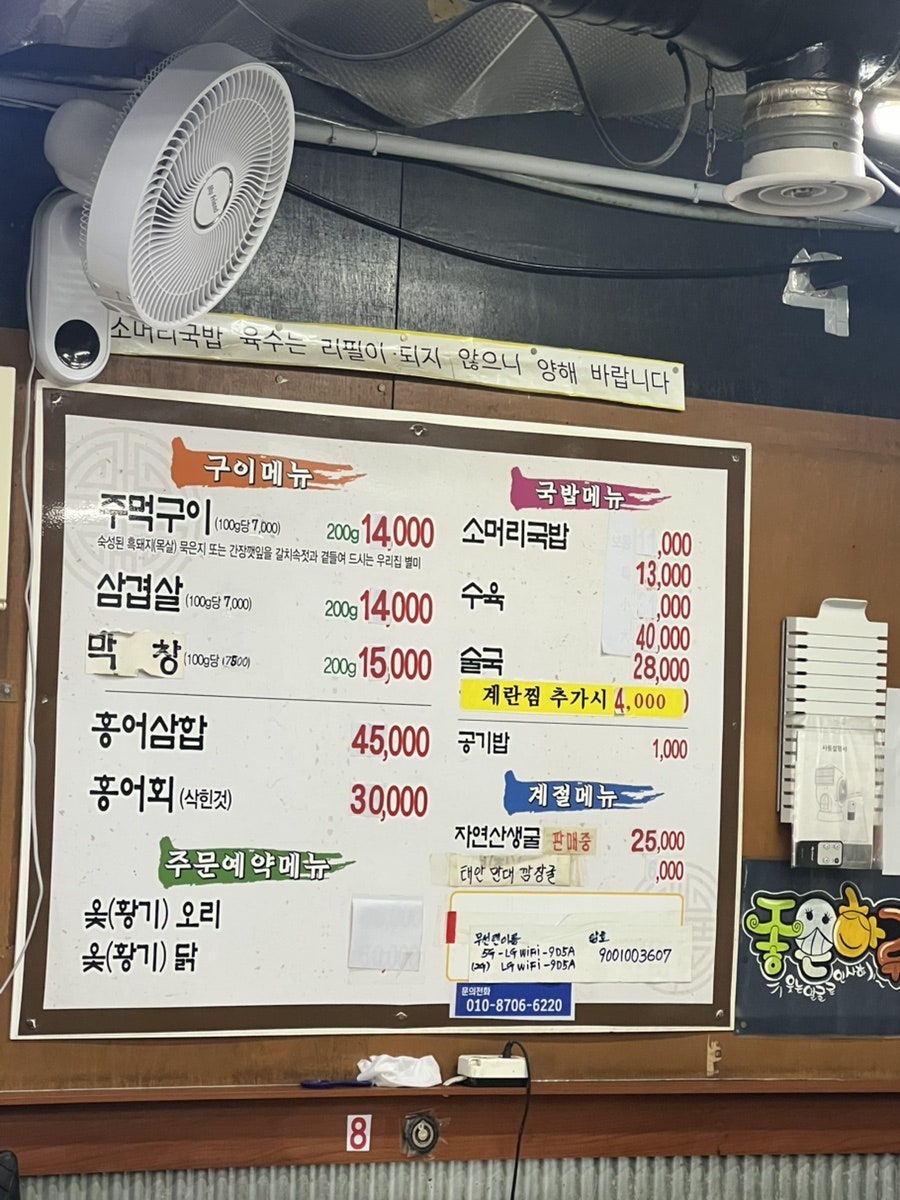 소머리국밥 육수는 리필이 되지 않으니 양해 바랍니다
구이메뉴
주먹구이 (100g당 7,000) 200g 14,000
숙성된 흑돼지(목살) 묵은지 또는 간장깻잎을 갈치속젓과 곁들여 드시는 우리집 별미
삼겹살 (100g당 7,000) 200g 14,000
막 창 (100g당 7500) 200g 15,000
홍어삼합 45,000
홍어회 (삭힌것) 30,000
주문예약메뉴
옻(황기) 오리
옻(황기) 닭
국밥메뉴
소머리국밥 ,000
13,000
수육 ,000
40,000
술국 28,000
계란찜 추가시 4,000 )
공기밥 1,000
계절메뉴
자연산생굴 판매중 25,000
태안 안대 깜장굴 ,000
무선랜이름 암호
5G - LG WiFi - 9D5A 9001003607
(2.4) LG WiFi - 9D5A
문의전화
010-8706-6220
사용설명서
좋은하루
8